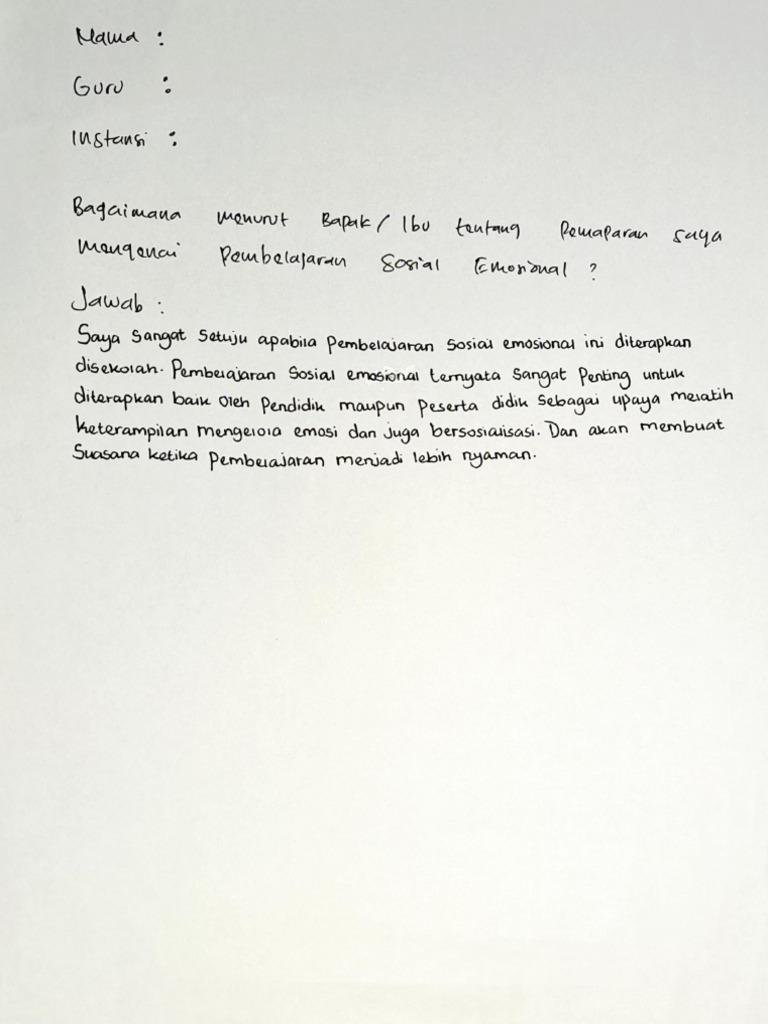 Nama :
Guru :
Instansi :
Bagaimana menurut Bapak/Ibu tentang Pemaparan saya
mengenai Pembelajaran Sosial Emosional ?
Jawab :
Saya Sangat Setuju apabila Pembelajaran Sosial emosional ini diterapkan
disekolah. Pembelajaran Sosial emosional ternyata Sangat Penting untuk
diterapkan baik oleh Pendidik maupun Peserta didik Sebagai upaya melatih
Keterampilan mengelola emosi dan juga bersosialisasi. Dan akan membuat
Suasana ketika Pembelajaran menjadi lebih nyaman.